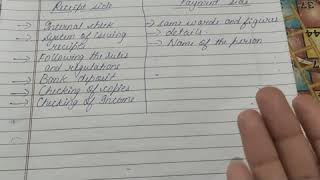 Receipt side
Payment side
→ Internal check
→ System of issuing receipts
→ Following the rules and regulations
→ Bank deposit
→ Checking of copies
→ Checking of Income
→ Same words and figures
→ details
→ Name of the person
37
44